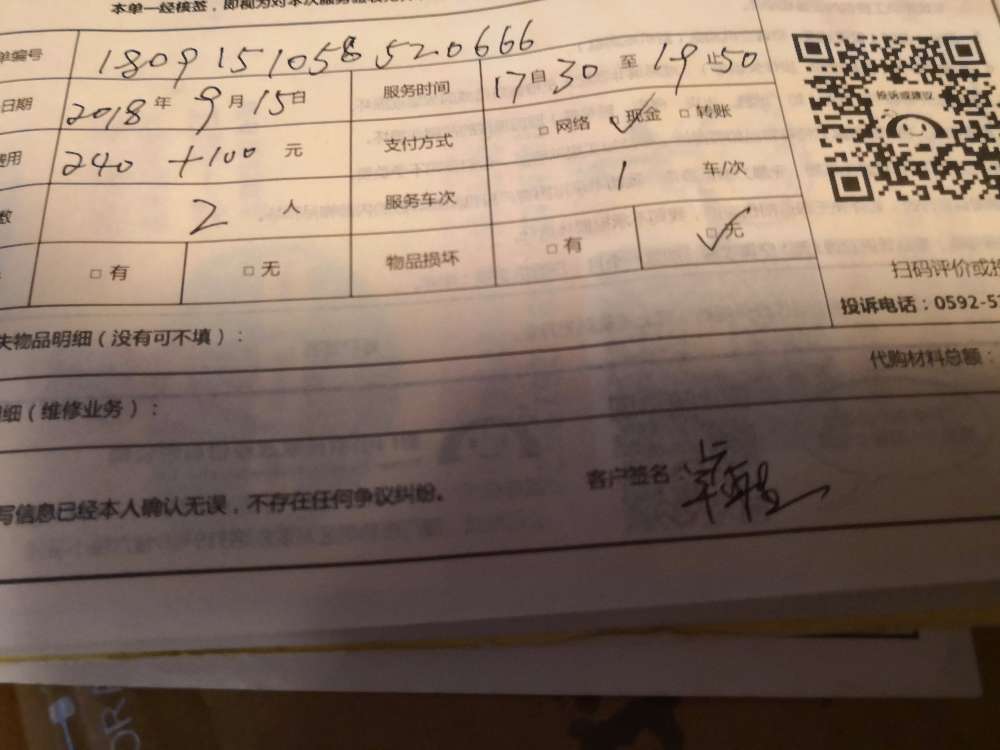 本单一经核签，即视为对本次服务
单编号 1809151058520666
日期 2018年9月15日 服务时间 17自30至19止50
费用 240+100元 支付方式 □网络 ☑现金 □转账
数 2人 服务车次 1车/次
□有 □无 物品损坏 □有 ☑无
投诉或建议
扫码评价或投
投诉电话：0592-5
失物品明细（没有可不填）：
代购材料总额：
细（维修业务）：
写信息已经本人确认无误，不存在任何争议纠纷。
客户签名：